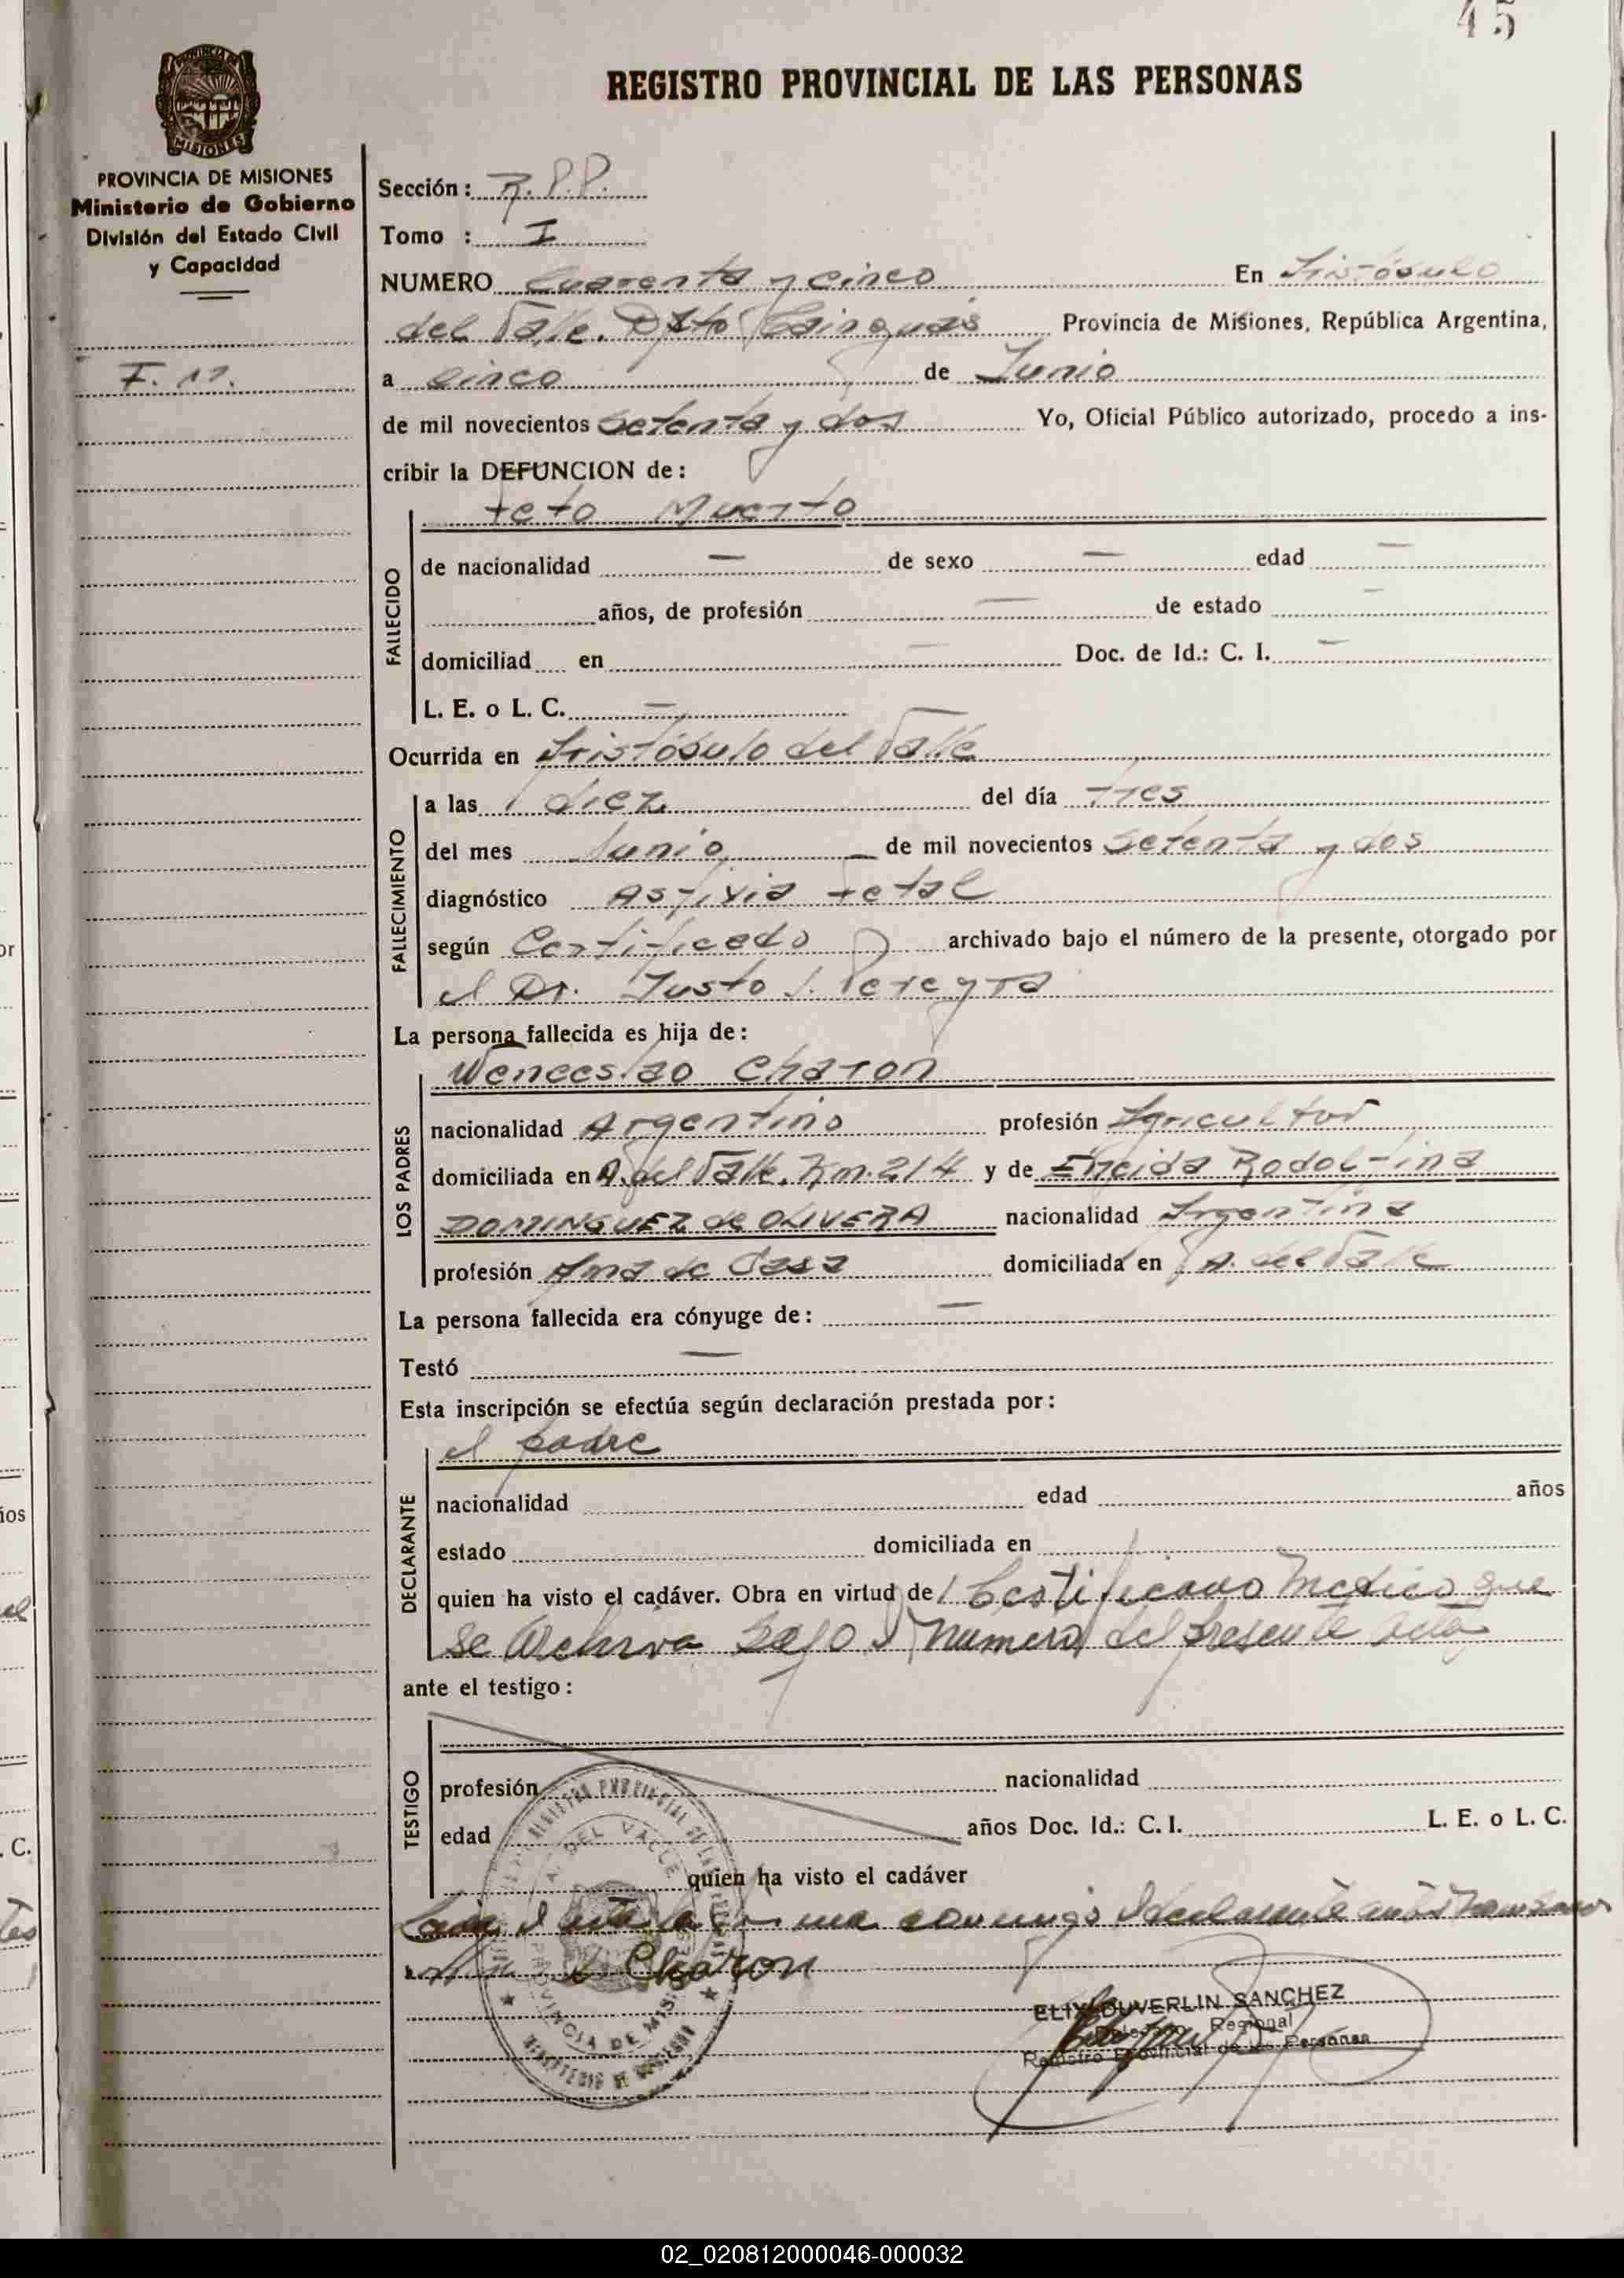 45
REGISTRO PROVINCIAL DE LAS PERSONAS
PROVINCIA DE
MISIONES
PROVINCIA DE MISIONES
Ministerio de Gobierno
División del Estado Civil
y Capacidad
Sección: R.P.P.
Tomo : I
NUMERO Cuarenta y cinco En Aristóbulo
del Valle. Dpto Cainguás Provincia de Misiones, República Argentina,
F. 17.
a cinco de Junio
de mil novecientos setenta y dos Yo, Oficial Público autorizado, procedo a ins-
cribir la DEFUNCION de:
feto Muerto
FALLECIDO
de nacionalidad — de sexo — edad —
años, de profesión — de estado —
domiciliad en — Doc. de Id.: C. I. —
L. E. o L. C. —
Ocurrida en Aristóbulo del Valle
FALLECIMIENTO
a las diez del día tres
del mes Junio de mil novecientos setenta y dos
diagnóstico Asfixia fetal
según Certificado archivado bajo el número de la presente, otorgado por
el Dr. Justo J. Pereyra
La persona fallecida es hija de:
LOS PADRES
Wenceslao Charon
nacionalidad Argentino profesión Agricultor
domiciliada en A. del Valle. Km. 214 y de Eneida Rodolfina
DOMINGUEZ de OLIVERA nacionalidad Argentina
profesión Ama de Casa domiciliada en A. del Valle
La persona fallecida era cónyuge de: —
Testó —
Esta inscripción se efectúa según declaración prestada por:
DECLARANTE
el padre
nacionalidad edad años
estado domiciliada en
quien ha visto el cadáver. Obra en virtud de Certificado Medico que
se archiva bajo el numero del presente acta
ante el testigo:
TESTIGO
profesión nacionalidad
edad años Doc. Id.: C. I. L. E. o L. C.
quien ha visto el cadáver
el acta la firma conmigo el declarante
Charon
REGISTRO PROVINCIAL DE LAS
A. DEL VALLE
PROVINCIA DE MISIONES
MINISTERIO DE GOBIERNO
ELIX DUVERLIN SANCHEZ
Delegado Regional
Registro Provincial de las Personas
02_020812000046-000032